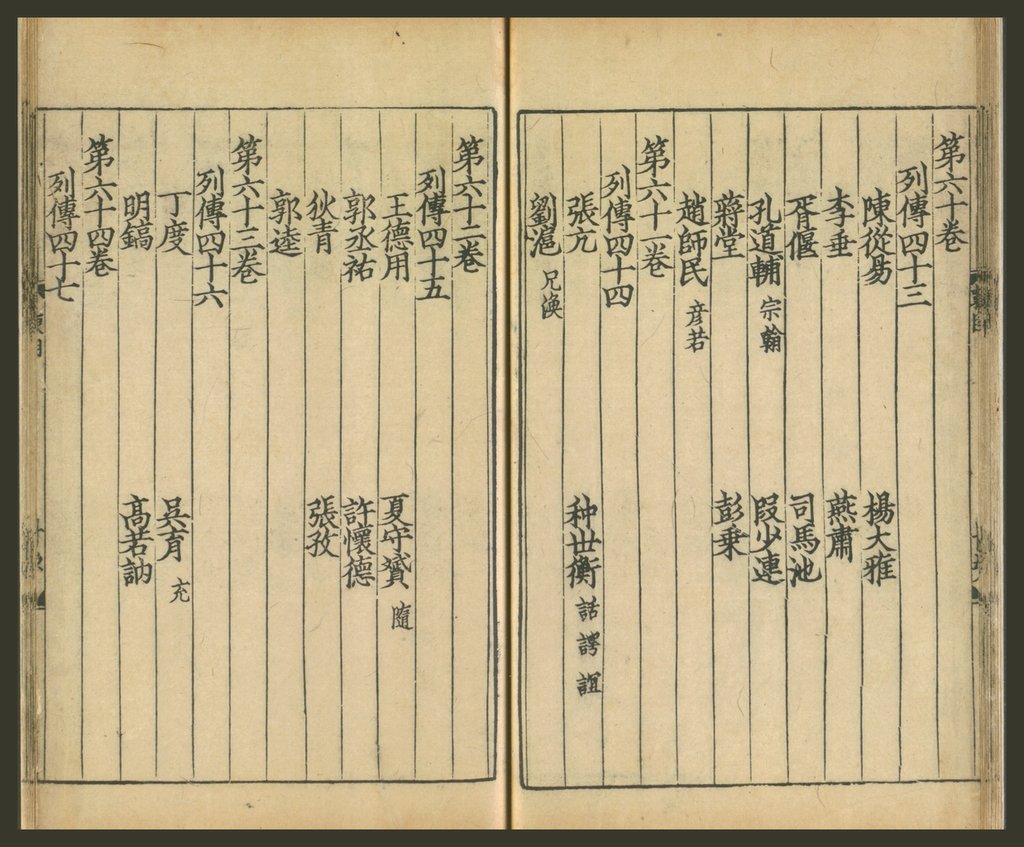 第六十卷
列傳四十三
陳從昜 楊大雅
李垂 燕肅
胥偃 司馬池
孔道輔 宗翰 段少連
蔣堂 彭乗
趙師民 彦若
第六十一卷
列傳四十四
張亢 种世衡 詁 諤 誼
劉滬 兄渙
第六十二卷
列傳四十五
王德用 夏守贇 隨
郭丞祐 許懷德
狄青 張孜
郭逵
第六十三卷
列傳四十六
丁度 吳育 充
明鎬 髙若訥
第六十四卷
列傳四十七